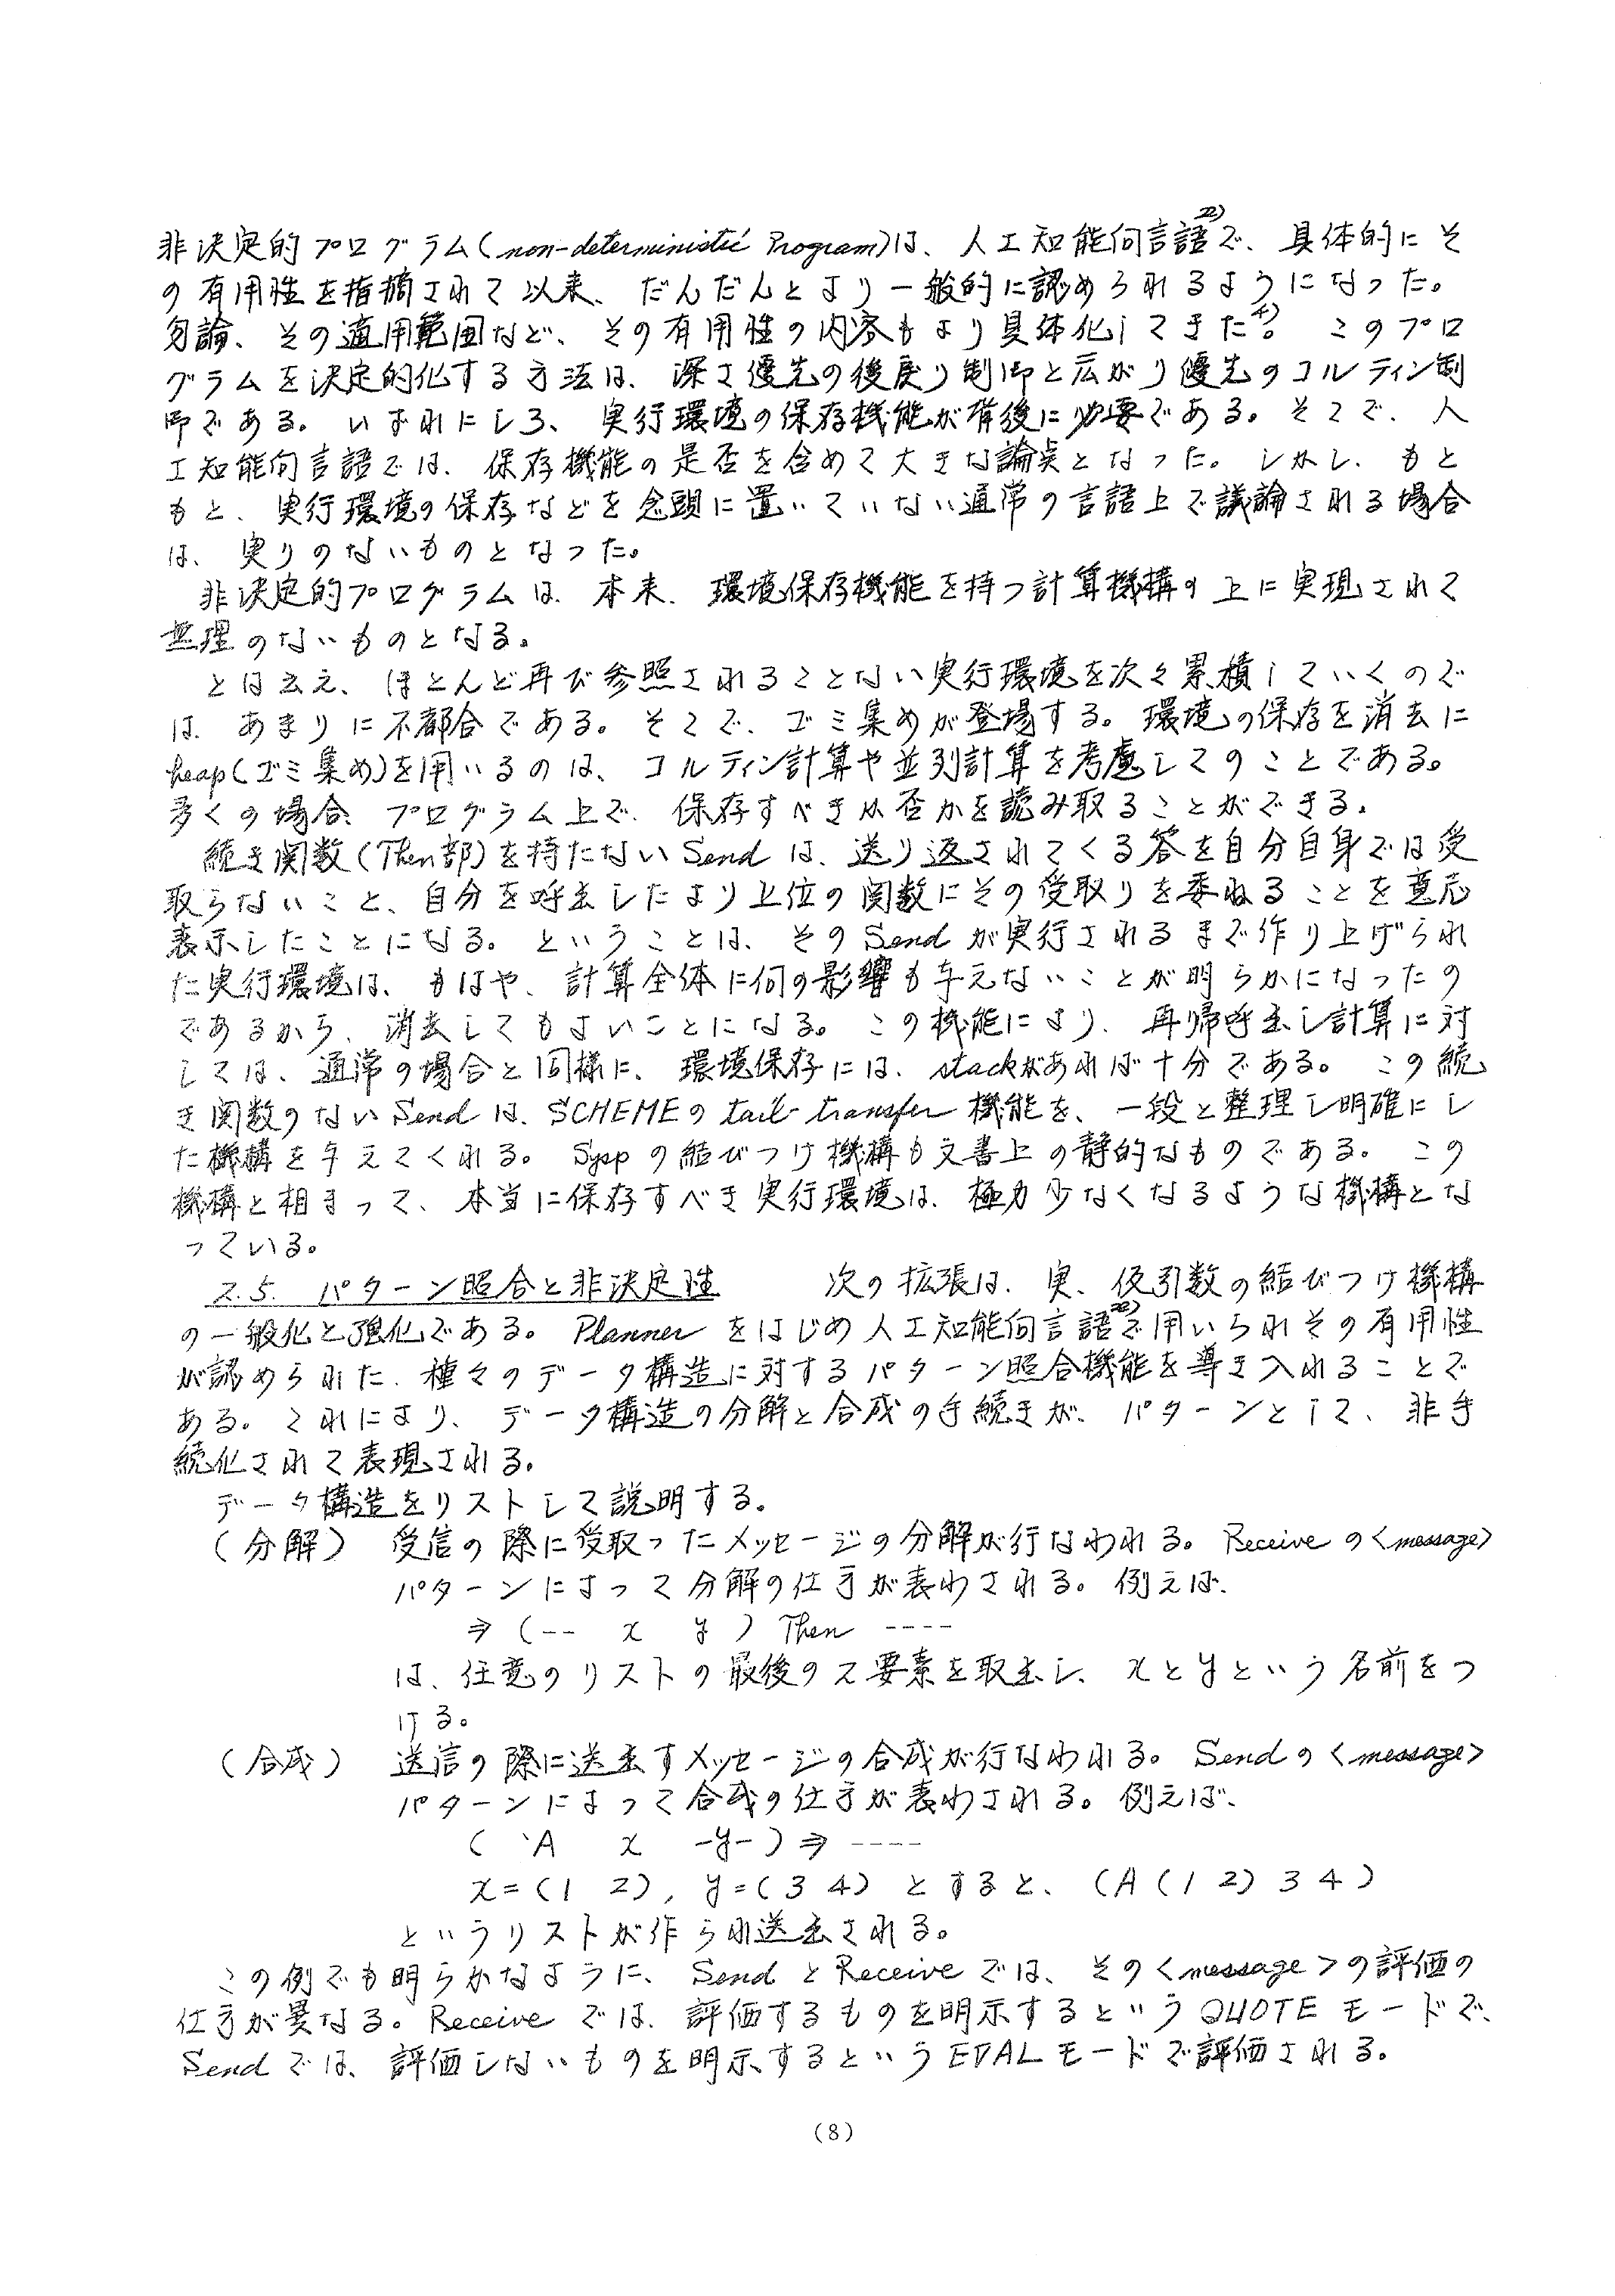 非決定的プログラム(non-deterministic Program)は、人工知能向言語22)で、具体的にそ
の有用性を指摘されて以来、だんだんとより一般的に認められるようになった。
勿論、その適用範囲など、その有用性の内容もより具体化してきた4)。 このプロ
グラムを決定的化する方法は、深さ優先の後戻り制御と広がり優先のコルティン制
御である。いずれにしろ、実行環境の保存機能が背後に必要である。そこで、人
工知能向言語では、保存機能の是否を含めて大きな論点となった。しかし、もと
もと、実行環境の保存などを念頭に置いていない通常の言語上で議論される場合
は、実りのないものとなった。
非決定的プログラムは、本来、環境保存機能を持つ計算機構の上に実現されて
無理のないものとなる。
とは云え、ほとんど再び参照されることない実行環境を次々累積していくので
は、あまりに不都合である。そこで、ゴミ集めが登場する。環境の保存を消去に
heap(ゴミ集め)を用いるのは、コルティン計算や並列計算を考慮してのことである。
多くの場合、プログラム上で、保存すべきか否かを読み取ることができる。
続き関数(Then部)を持たないSendは、送り返されてくる答を自分自身では受
取らないこと、自分を呼出したより上位の関数にその受取りを委ねることを意志
表示したことになる。ということは、そのSendが実行されるまで作り上げられ
た実行環境は、もはや、計算全体に何の影響も与えないことが明らかになったの
であるから、消去してもよいことになる。この機能により、再帰呼出し計算に対
しては、通常の場合と同様に、環境保存には、stackがあれば十分である。この続
き関数のないSendは、SCHEMEのtail-transfer機能を、一段と整理し明確にし
た機構を与えてくれる。Syspの結びつけ機構も文書上の静的なものである。この
機構と相まって、本当に保存すべき実行環境は、極力少なくなるような機構とな
っている。
2.5. パターン照合と非決定性 次の拡張は、実、仮引数の結びつけ機構
の一般化と強化である。Plannerをはじめ人工知能向言語22)で用いられその有用性
が認められた、種々のデータ構造に対するパターン照合機能を導き入れることで
ある。これにより、データ構造の分解と合成の手続きが、パターンとして、非手
続化されて表現される。
データ構造をリストして説明する。
(分解) 受信の際に受取ったメッセージの分解が行なわれる。Receiveの<message>
パターンによって分解の仕方が表わされる。例えば、
⇒ (-- x y ) Then ----
は、任意のリストの最後の2要素を取出し、xとyという名前をつ
ける。
(合成) 送信の際に送出すメッセージの合成が行なわれる。Sendの<message>
パターンによって合成の仕方が表わされる。例えば、
( 'A x -y-) ⇒ ----
x=(1 2), y=(3 4) とすると、(A (1 2) 3 4)
というリストが作られ送出される。
この例でも明らかなように、SendとReceiveでは、その<message>の評価の
仕方が異なる。Receiveでは、評価するものを明示するというQUOTEモードで、
Sendでは、評価しないものを明示するというEVALモードで評価される。
(8)